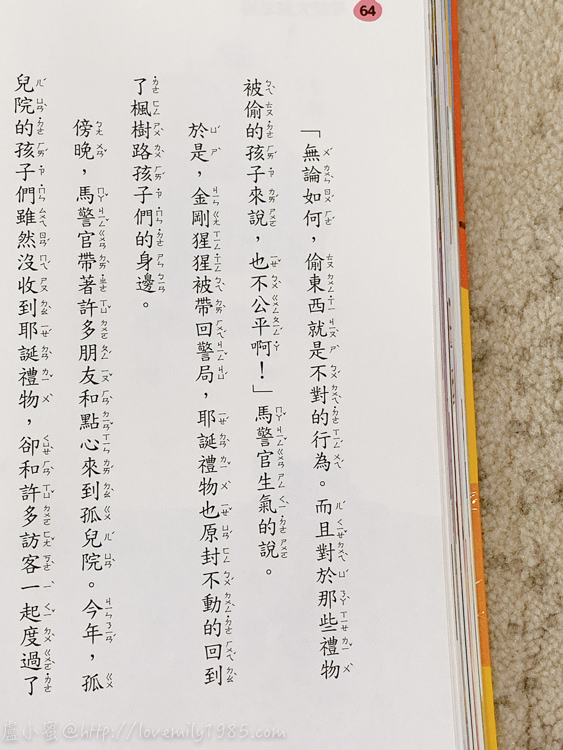 64
「無論如何，偷東西就是不對的行為。而且對於那些禮物
被偷的孩子來說，也不公平啊！」馬警官生氣的說。
於是，金剛猩猩被帶回警局，耶誕禮物也原封不動的回到
了楓樹路孩子們的身邊。
傍晚，馬警官帶著許多朋友和點心來到孤兒院。今年，孤
兒院的孩子們雖然沒收到耶誕禮物，卻和許多訪客一起度過了
盧小蜜@http://lovemily1985.com